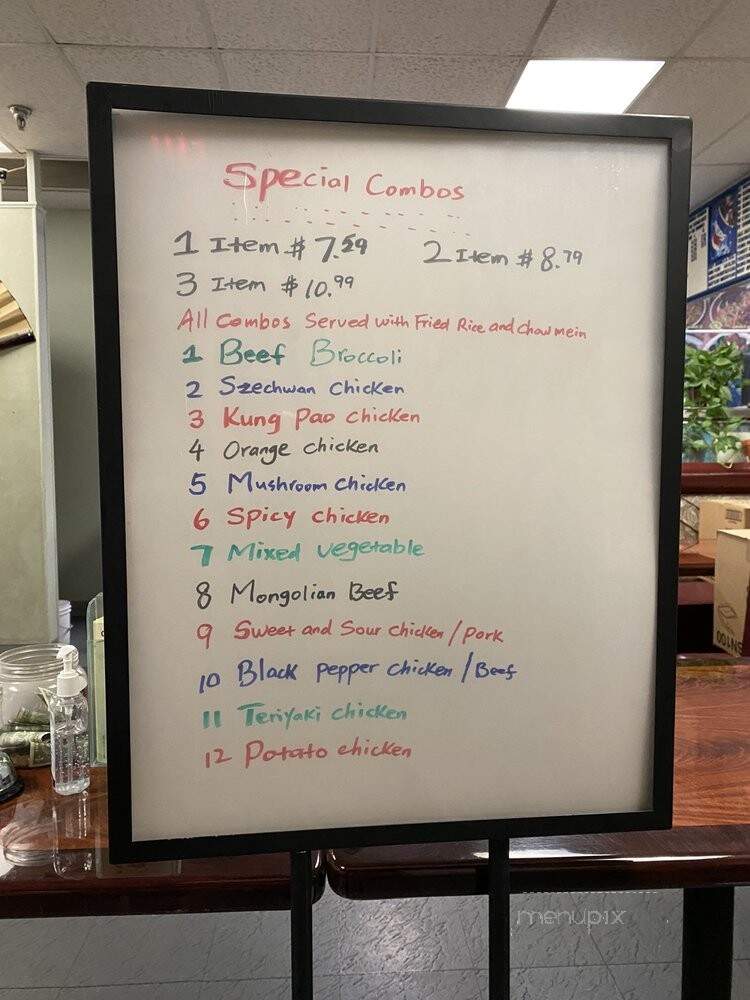 Special Combos
1 Item $ 7.59 2 Item $ 8.79
3 Item $ 10.99
All Combos Served with Fried Rice and Chow mein
1 Beef Broccoli
2 Szechwan Chicken
3 Kung Pao chicken
4 Orange chicken
5 Mushroom chicken
6 Spicy chicken
7 Mixed vegetable
8 Mongolian Beef
9 Sweet and Sour chicken / pork
10 Black pepper chicken / Beef
11 Teriyaki chicken
12 Potato chicken
menupix